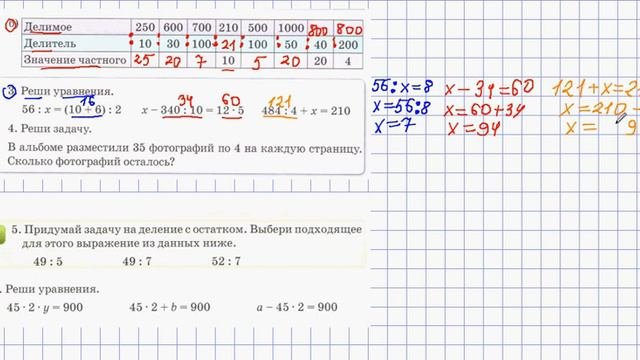 Делимое 250 600 700 210 500 1000 800 800
Делитель 10 30 100 21 100 50 40 200
Значение частного 25 20 7 10 5 20 20 4
3. Реши уравнения.
16 34 60 121
56 : x = (10 + 6) : 2 x − 340 : 10 = 12 · 5 484 : 4 + x = 210
4. Реши задачу.
В альбоме разместили 35 фотографий по 4 на каждую страницу.
Сколько фотографий осталось?
56 : x = 8
x = 56 : 8
x = 7
x − 34 = 60
x = 60 + 34
x = 94
121 + x = 2
x = 210
x = 9
5. Придумай задачу на деление с остатком. Выбери подходящее
для этого выражение из данных ниже.
49 : 5 49 : 7 52 : 7
. Реши уравнения.
45 · 2 · y = 900 45 · 2 + b = 900 a − 45 · 2 = 900